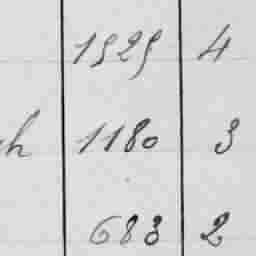 1525 4
h 1180 3
683 2